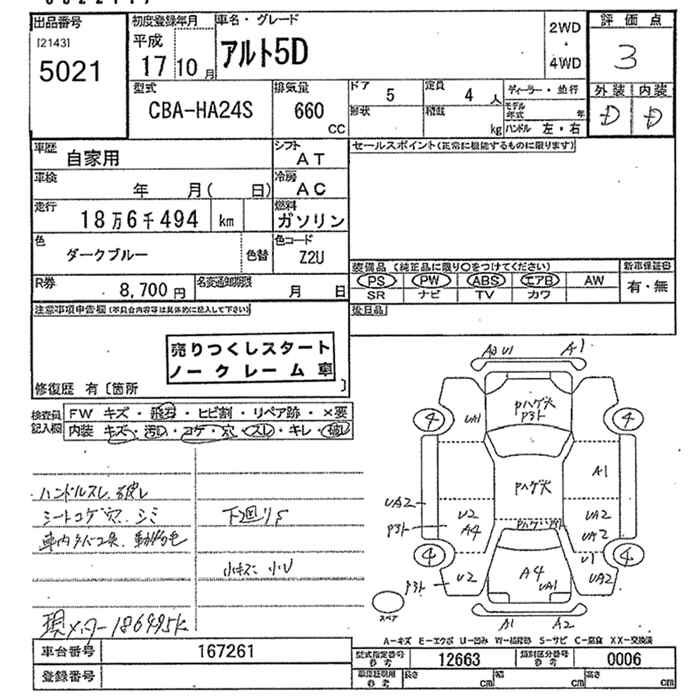 出品番号 初度登録年月 車名・グレード 2WD・4WD 評価点
[2143] 5021 平成 17 10月 アルト5D 3
型式 排気量 ドア 5 定員 4人 ディーラー・並行 外装 内装
CBA-HA24S 660 CC 形状 積載 kg モデル年式 年 D D
ハンドル 左・右
車歴 自家用 シフト AT セールスポイント(正常に機能するものに限ります)
車検 年 月( 日) 冷房 AC
走行 18万6千494 km 燃料 ガソリン
色 ダークブルー 色替 色コード Z2U
装備品 (純正品に限り○をつけてください) 新車保証書
R券 8,700円 名変通知期限 月 日 PS PW ABS エアB AW 有・無
SR ナビ TV カワ
注意事項申告欄(不具合内容等は具体的に記入して下さい) 後日品
売りつくしスタート
ノークレーム車
修復歴 有[箇所 ]
検査員記入欄 FW キズ・飛石・ヒビ割・リペア跡・×要
内装 キズ・汚れ・コゲ・穴・スレ・キレ・破レ
A3 U1 A1
4 UA1 PハゲX P3ト 4
A1
PハゲX
UA2 P3ト U2 A4 UA2 UA2
4 P3ト U2 A4 UA1 U1 UA2 4
A1 A2
スペア
ハンドルスレ、破レ
シートコゲ穴、シミ 下廻りS
小キズ 小U
現メーター186495k
A-キズ E-エクボ U-凹み W-補修跡 S-サビ C-腐食 XX-交換済
車台番号 167261 型式指定番号 参考 12663 類別区分番号 参考 0006
登録番号 車庫証明用 参考 長さ cm 幅 cm 高さ cm